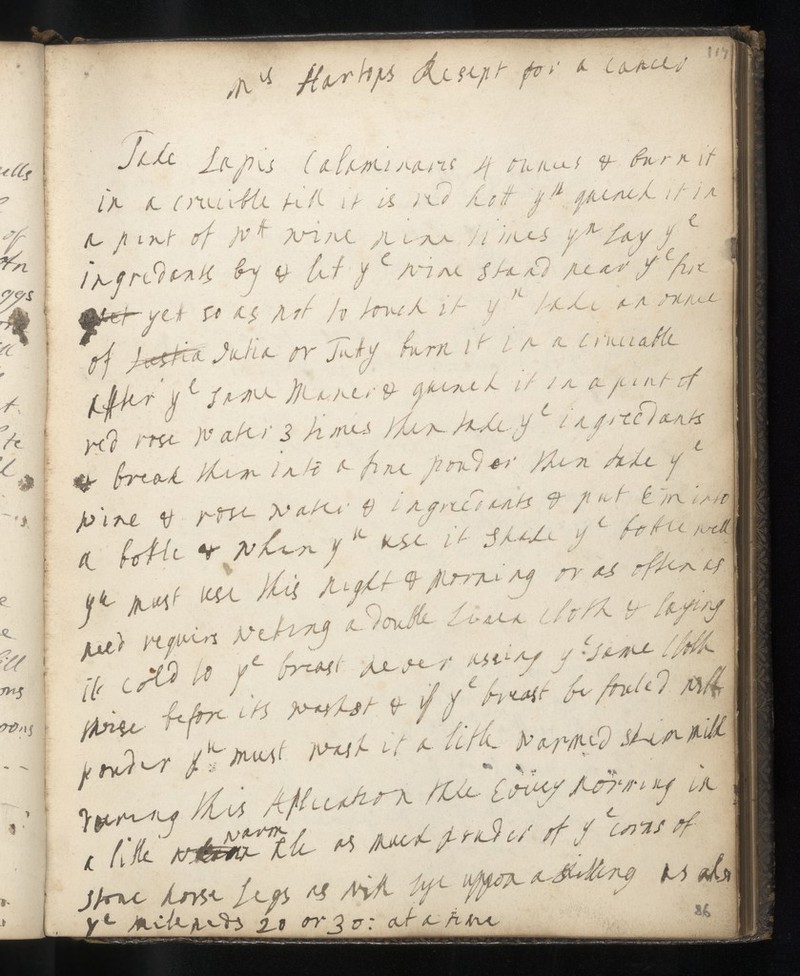 117
Mrs Hartops Resept for a cancer
Take Lapis Calaminaris 4 ounces & burn it
in a crucible till it is red hott yn quench it in
a pint of wt wine nine times yn Lay ye
ingredants by & let ye wine stand near ye fire
yet so as not to touch it yn take an ounce
of Tutia or Tuty burn it in a cruciable
after ye same Maner & quench it in a pint of
red rose water 3 times then take ye ingreedants
& break them into a fine pouder then take ye
wine & rose water & ingreedants & put Em into
a bottle & when yu use it shake ye bottle well
yu must use this night & morning or as often as
need requirs weting a double Linen cloth & laying
it cold to ye breast never useing ye same cloth
twise before its washet & if ye breast be fouled with
pouder yu must wash it a litle warmed skim milk
during this Aplication take Every morning in
a litle warm Ale as much pouder of ye corns of
stone horse Legs as will lye uppon a shilling as also
ye milepeds 20 or 30: at a time
86
ells
of
ggs